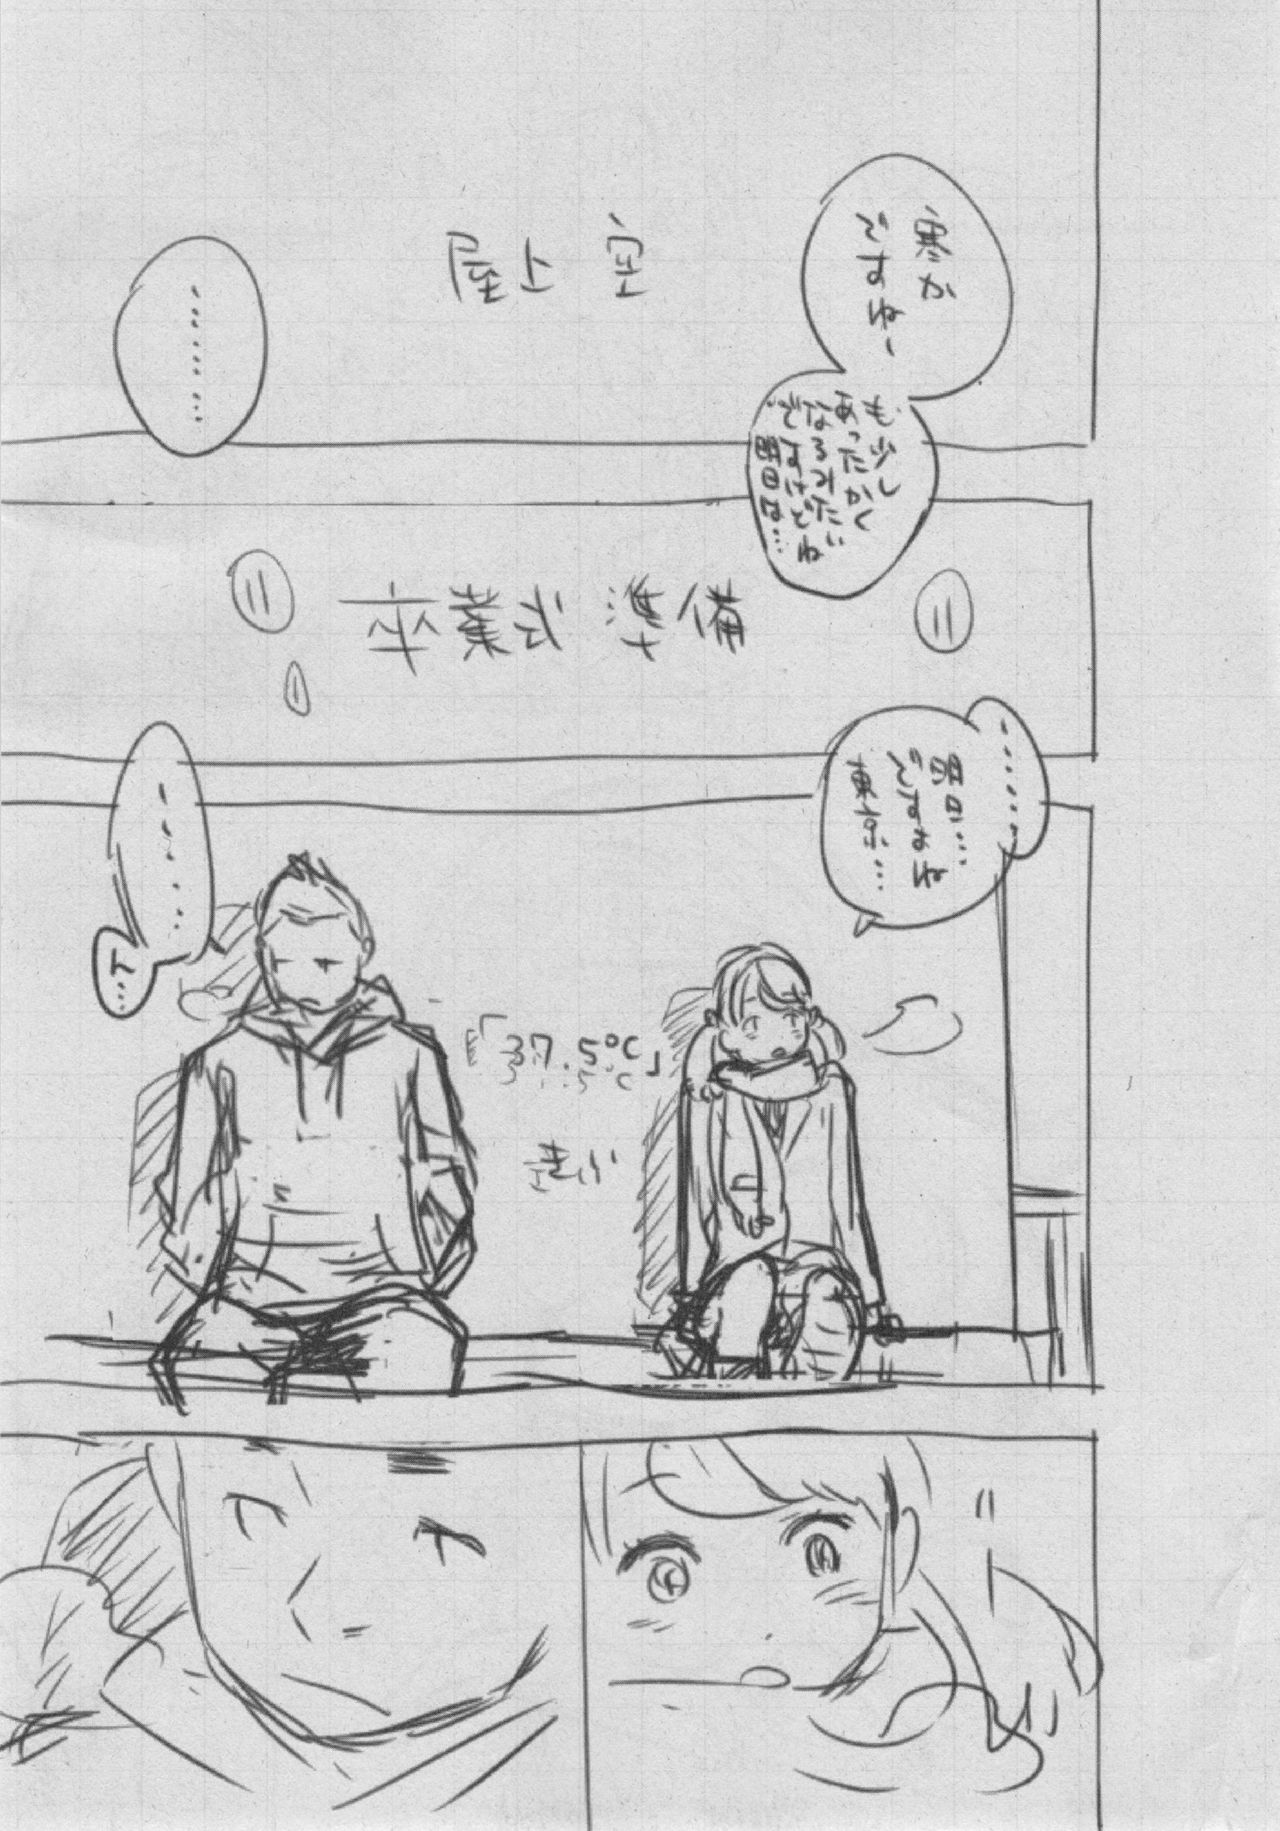 寒か
ですねー
も少し
あったかく
なるみたい
ですけどね
明日は…
屋上 空
………
卒業式 準備
……
明日…
ですよね
東京…
……
ん…
「37.5℃」